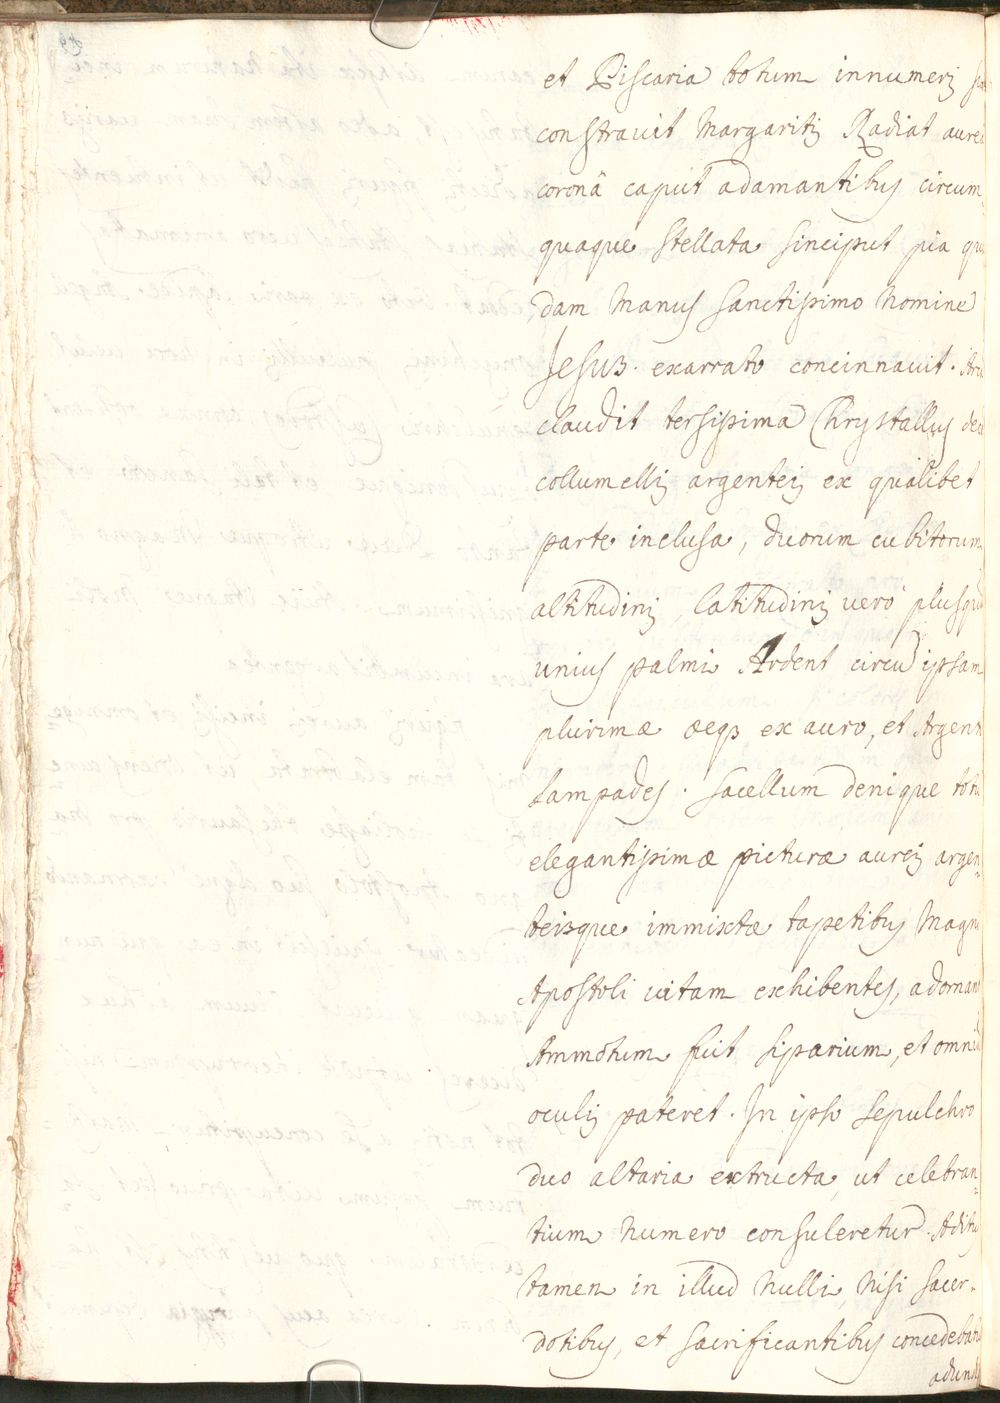 et Piscaria totum innumeris
constravit Margaritis Radiat aurea
coronâ caput adamantibus circum
quaque stellata sinciput pia
dam Manus sanctissimo Nomine
Jesus. exarrato concinnavit.
claudit tersissima Chrystallus
collumellis argenteis ex qualibet
parte inclusa, duorum cubitorum
altitudinis, latitudinis verò
unius palmi Ardent circu ipsam
plurimæ æeqꝫ ex auro, et Argent
Lampades. sacellum denique
elegantissimæ picturæ aureis argen-
teisque immixtæ tapetibus Magni
Apostoli vitam exhibentes, adornant
Ammotum fuit siparium, et omni
oculis pateret. In ipso sepulchro
duo altaria extructa, ut celebran-
tium Numero consuleretur. Aditus
tamen in illud Nulli, Nisi sacer-
dotibus, et sacrificantibus